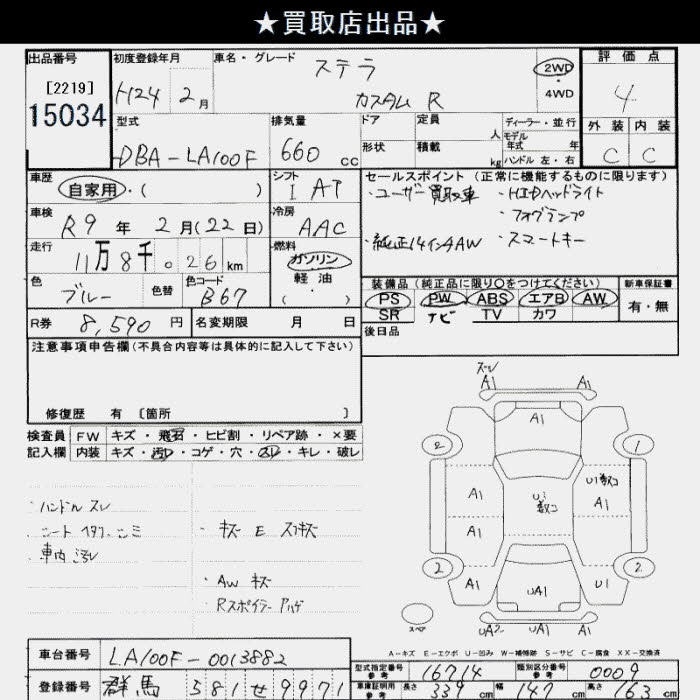 ★買取店出品★
出品番号
[2219]
15034
初度登録年月
H24 2月
車名・グレード
ステラ
カスタム R
2WD
・
4WD
評価点
4
外装 内装
C C
型式
DBA-LA100F
排気量
660 cc
ドア
形状
定員 人
積載 kg
ディーラー・並行
モデル
年式 年
ハンドル 左・右
車歴
自家用・( )
シフト
I AT
車検
R9年 2月(22日)
冷房
AAC
走行
11万8千026km
燃料
ガソリン
軽油
( )
色
ブルー
色替
色コード
B67
R券 8,590円
名変期限 月 日
セールスポイント(正常に機能するものに限ります)
・ユーザー買取車 ・HIDヘッドライト
・フォグランプ
・純正14インチAW ・スマートキー
装備品(純正品に限り○をつけてください)
新車保証書
PS PW ABS エアB AW
有・無
SR ナビ TV カワ
後日品
注意事項申告欄(不具合内容等は具体的に記入して下さい)
修復歴 有 〔箇所 〕
検査員
記入欄
FW キズ・飛石・ヒビ割・リペア跡・×要
内装 キズ・汚レ・コゲ・穴・スレ・キレ・破レ
・ハンドル スレ
・シート ヘタリ シミ
・車内 汚レ
・キズ E スリキズ
・AW キズ
・Rスポイラー ハゲ
スレ
A1 A1
A1
2 1
U1数コ
A1 U1数コ A1
A1 A1
2 2
A1 UA1 U1
スペア
UA2 UA1 A1
A-キズ E-エクボ U-凹み W-補修跡 S-サビ C-腐食 XX-交換済
車台番号 LA100F-0013882
型式指定番号
参考
16714
類別区分番号
参考
0009
登録番号 群馬 581 せ 9971
車庫証明用
参考
長さ 339cm 幅 147cm 高さ 163cm